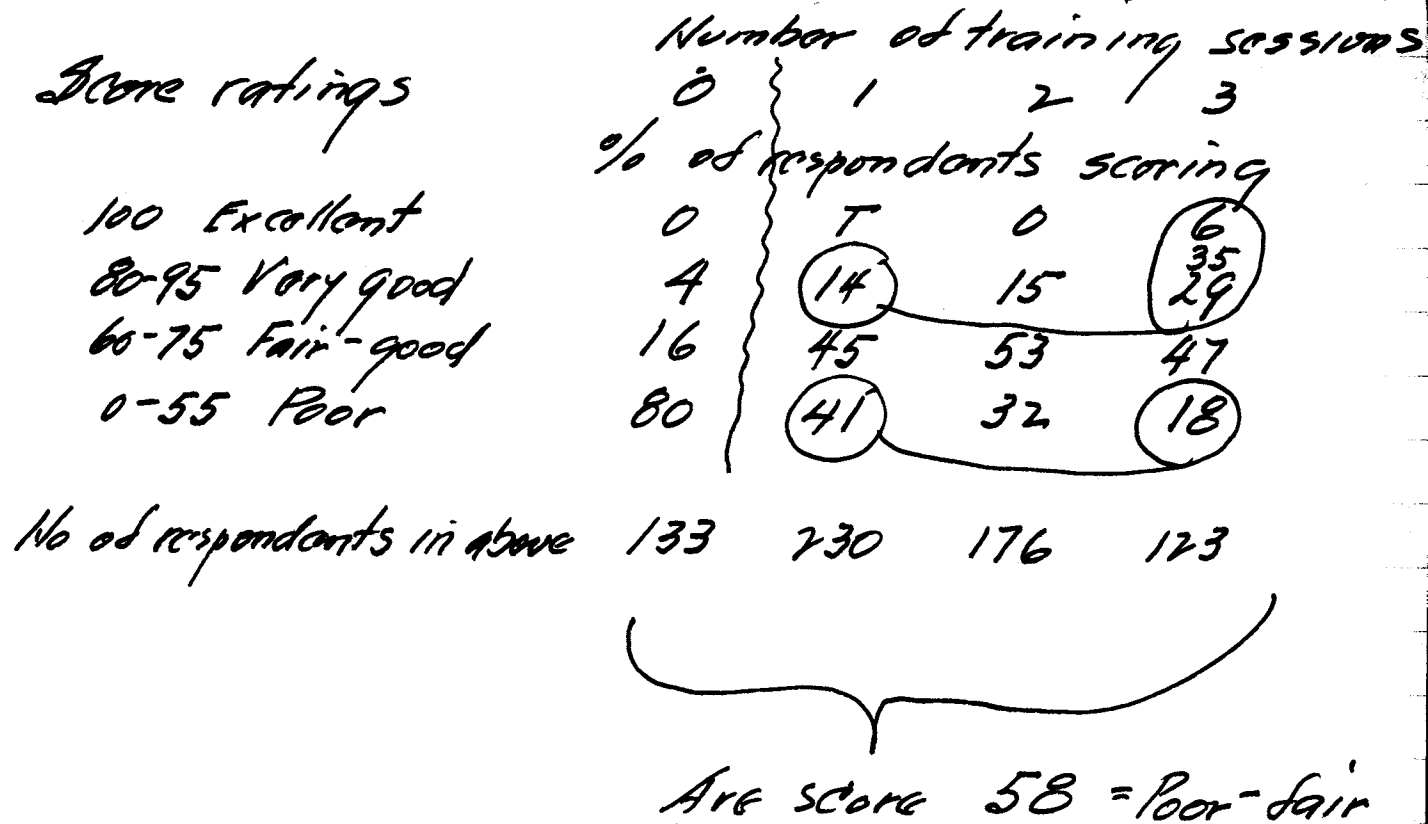 Number of training sessions
Score ratings 0 1 2 3
% of respondents scoring
100 Excellent 0 T 0 6
35
80-95 Very good 4 14 15 29
60-75 Fair-good 16 45 53 47
0-55 Poor 80 41 32 18
No of respondents in above 133 230 176 123
Ave score 58 = Poor-fair